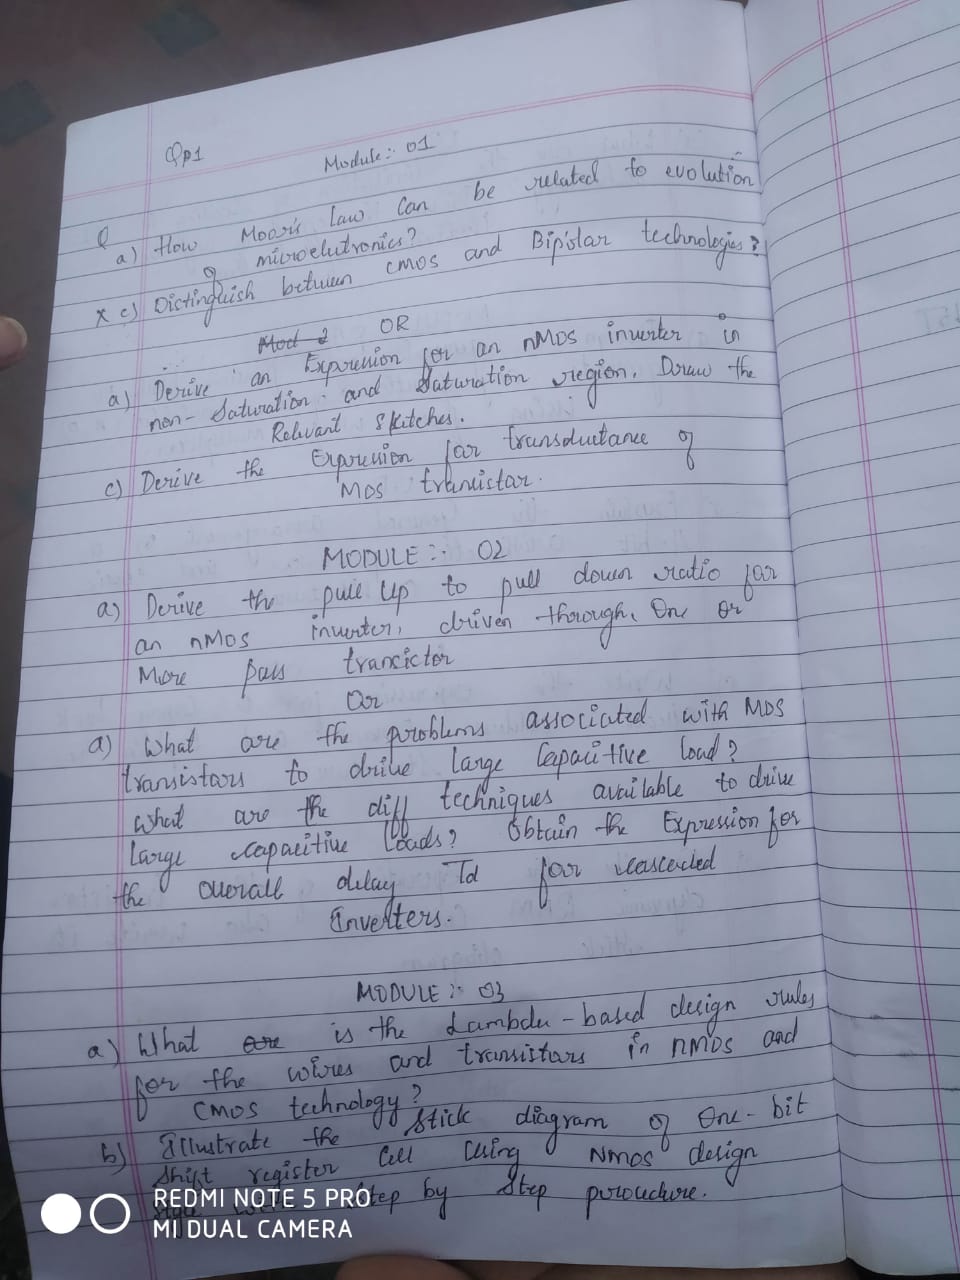 Qp1
Module:- 01
Q
a) How Moor's Law Can be related to evolution
of microelutronics?
x c) Distinguish between CMOS and Bipolar technologies?
Mod 2 OR
a) Derive an Expression for an nMOS inverter in
non-Saturation and Saturation region. Draw the
Relevant Sketches.
c) Derive the Expression for transductance of
MOS transistor.
MODULE :- 02
a) Derive the pull up to pull down ratio for
an nMOS inverter, driven through, One or
More pass trancictor
Or
a) What are the problems associated with MOS
transistors to drive large Capacitive load?
What are the diff techniques available to drive
large capacitive loads? Obtain the Expression for
the overall delay Td for cascaded
Inverters.
MODULE :- 03
a) What are is the Lambda-based design rules
for the wires and transistors in nMOS and
CMOS technology?
b) Illustrate the Stick diagram of One-bit
Shift register Cell Using NMOS design
Step by Step procedure.
REDMI NOTE 5 PRO
MI DUAL CAMERA